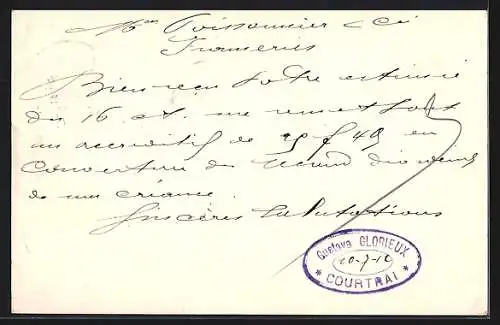 Mrs Poissonnier & Ci
Fumeries
Bien reçu votre estimée
du 16 ct. me remettant
un accréditif de 49 en
couverture de
de ma créance.
Sincères salutations
Gustave GLORIEUX
20-7-12
* COURTRAI *